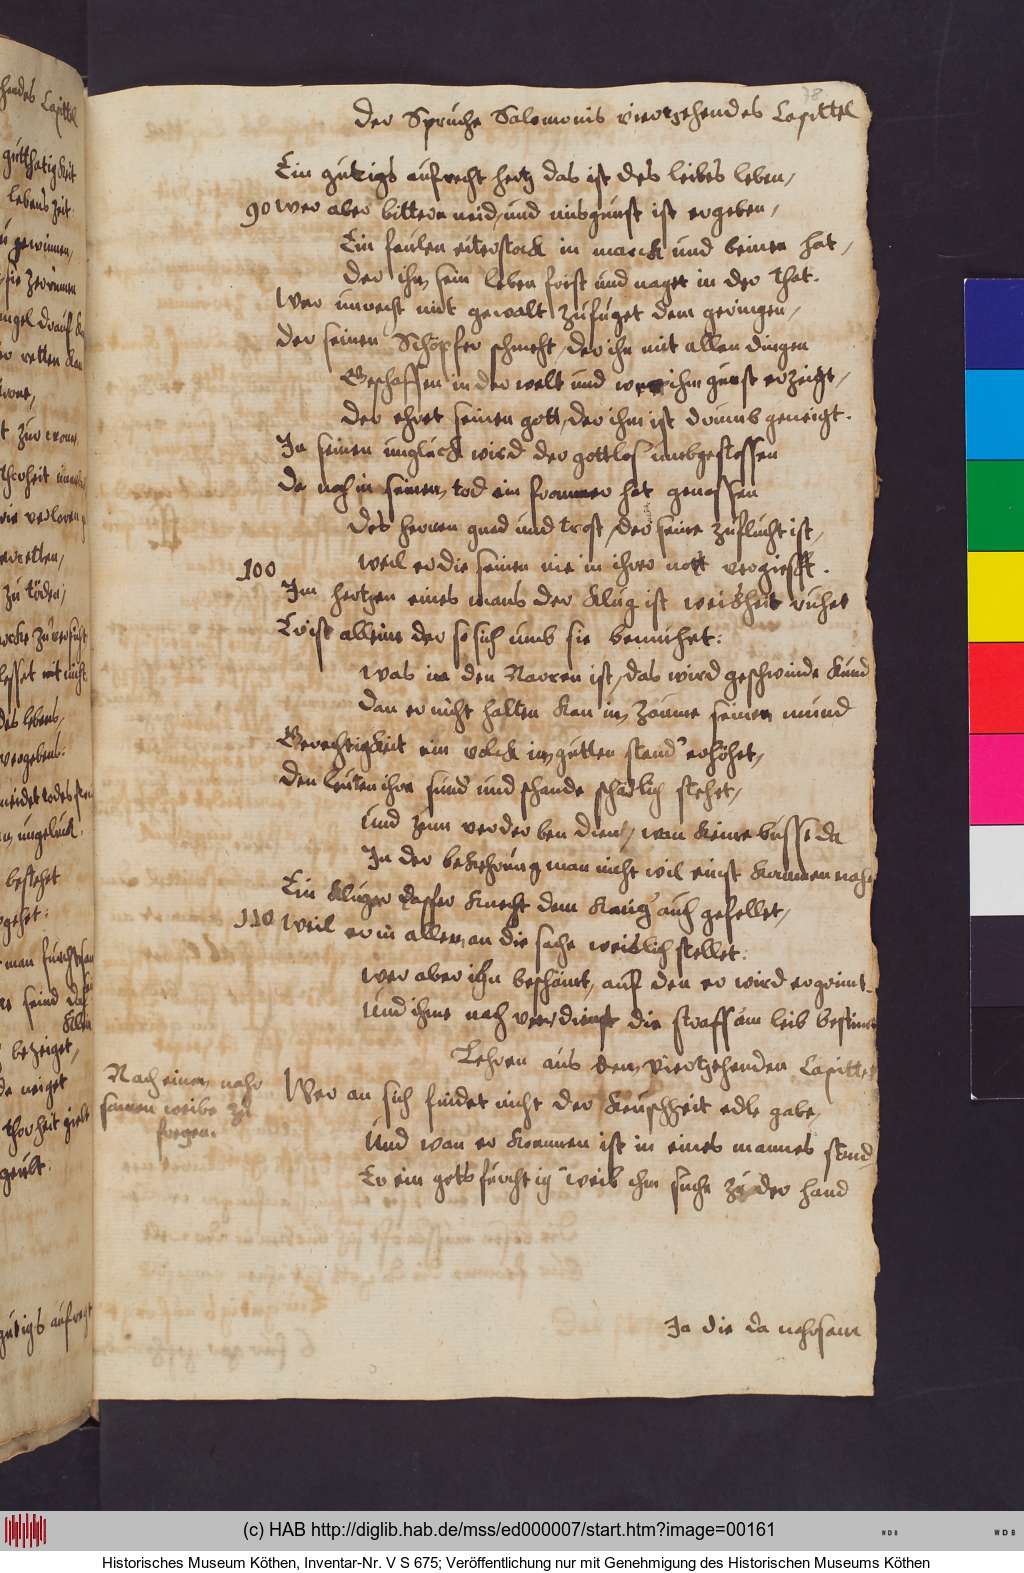 78
Der Sprüche Salomonis vierzehendes Capittel
Ein gütigs aufrecht hertz das ist des leibes leben,
90 Wer aber bittern neid, und misgunst ist ergeben,
Ein faulen eiterstock in marck und beinen hat,
Der ihm sein leben frist und naget in der that.
Wer unrecht mit gewalt zufüget dem geringen,
der seinen Schöpfer schmeht, der ihn mit allen dingen
Geschaffen in der welt und wer ihm gunst erzeigt,
der ehret seinen gott, der ihm ist drumb geneigt.
In seinen unglück wird der gottlos umbgestossen
Da noch in seinem tod ein frommer hat genossen
des herren gnad und trost, der seine zuflucht ist,
100 weil er die seinen nie in ihrer nott vergiesst.
Im hertzen eines mans der klug ist weisheit ruhet
Er ist alleine der so sich umb sie bemuhet:
was in den Narren ist, das wird geschwinde kund
dan er nicht halten kan im zaume seinen mund
Gerechtigkeit ein volck im gutten stand erhöhet,
den leuten ihre sünd und schande schädlich stehet,
und zum verderben dient, wan keine busse da
In der bekehrung man nicht wil einst kommen nahe
Ein kluger tapfer knecht dem könig auch gefellet,
110 Weil er in allem an die sache weislich stellet:
wer aber ihn beschämt, auf den er wird ergrimt
Und ihme nach verdienst die straff am leib bestimt
Lehren aus dem viertzehenden Capittel
Nach einem nahr
samen weibe zu
fregen.
Wer an sich findet nicht der keuschheit edle gabe,
Und wan er kommen ist in eines mannes stand
Er ein gottsfürchtig weib ihm suche zu der hand
Ja die da nahrsam
(c) HAB http://diglib.hab.de/mss/ed000007/start.htm?image=00161
WDB
WDB
Historisches Museum Köthen, Inventar-Nr. V S 675; Veröffentlichung nur mit Genehmigung des Historischen Museums Köthen